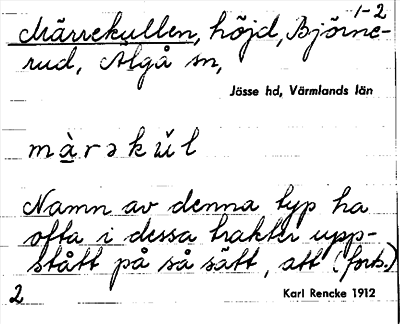 1-2
Märrekullen, höjd, Björne-
rud, Älgå sn,
Jösse hd, Värmlands län
mà̱rəkŭl
Namn av denna typ ha
ofta i dessa trakter upp-
stått på så sätt, att (forts.)
2
Karl Rencke 1912